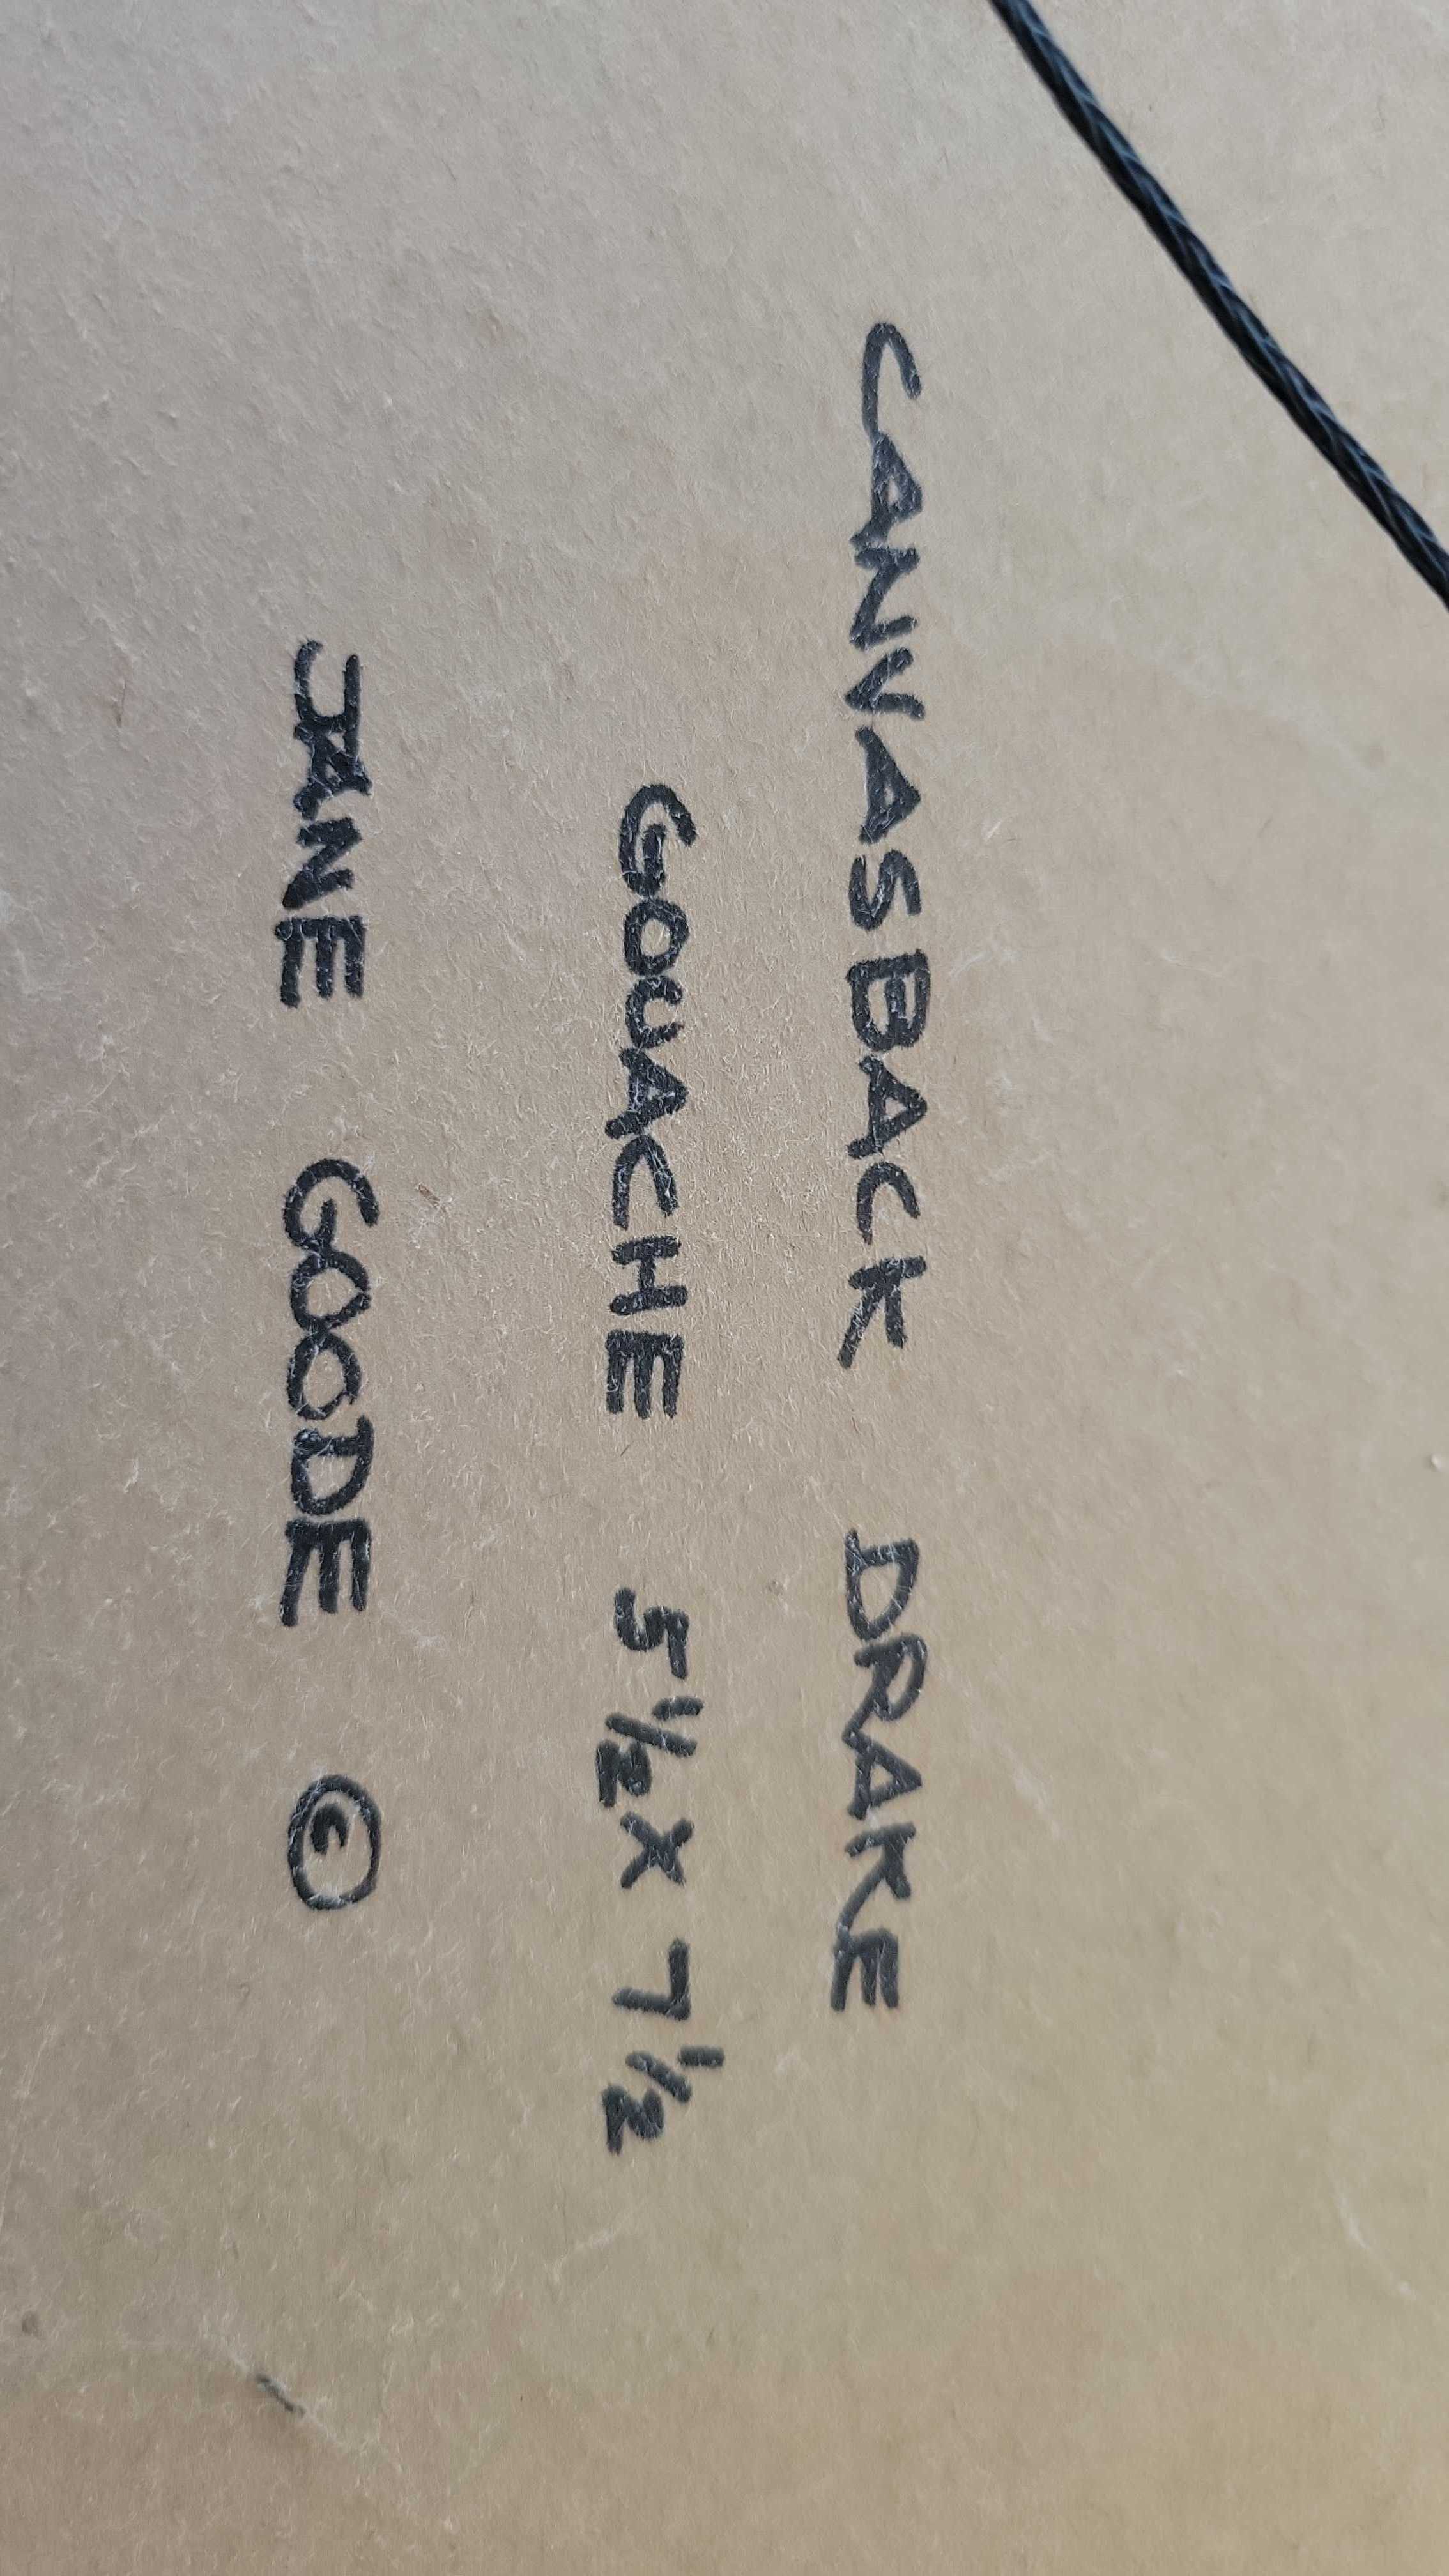 CANVASBACK DRAKE
GOUACHE 5 1/2 X 7 1/2
JANE GOODE ©